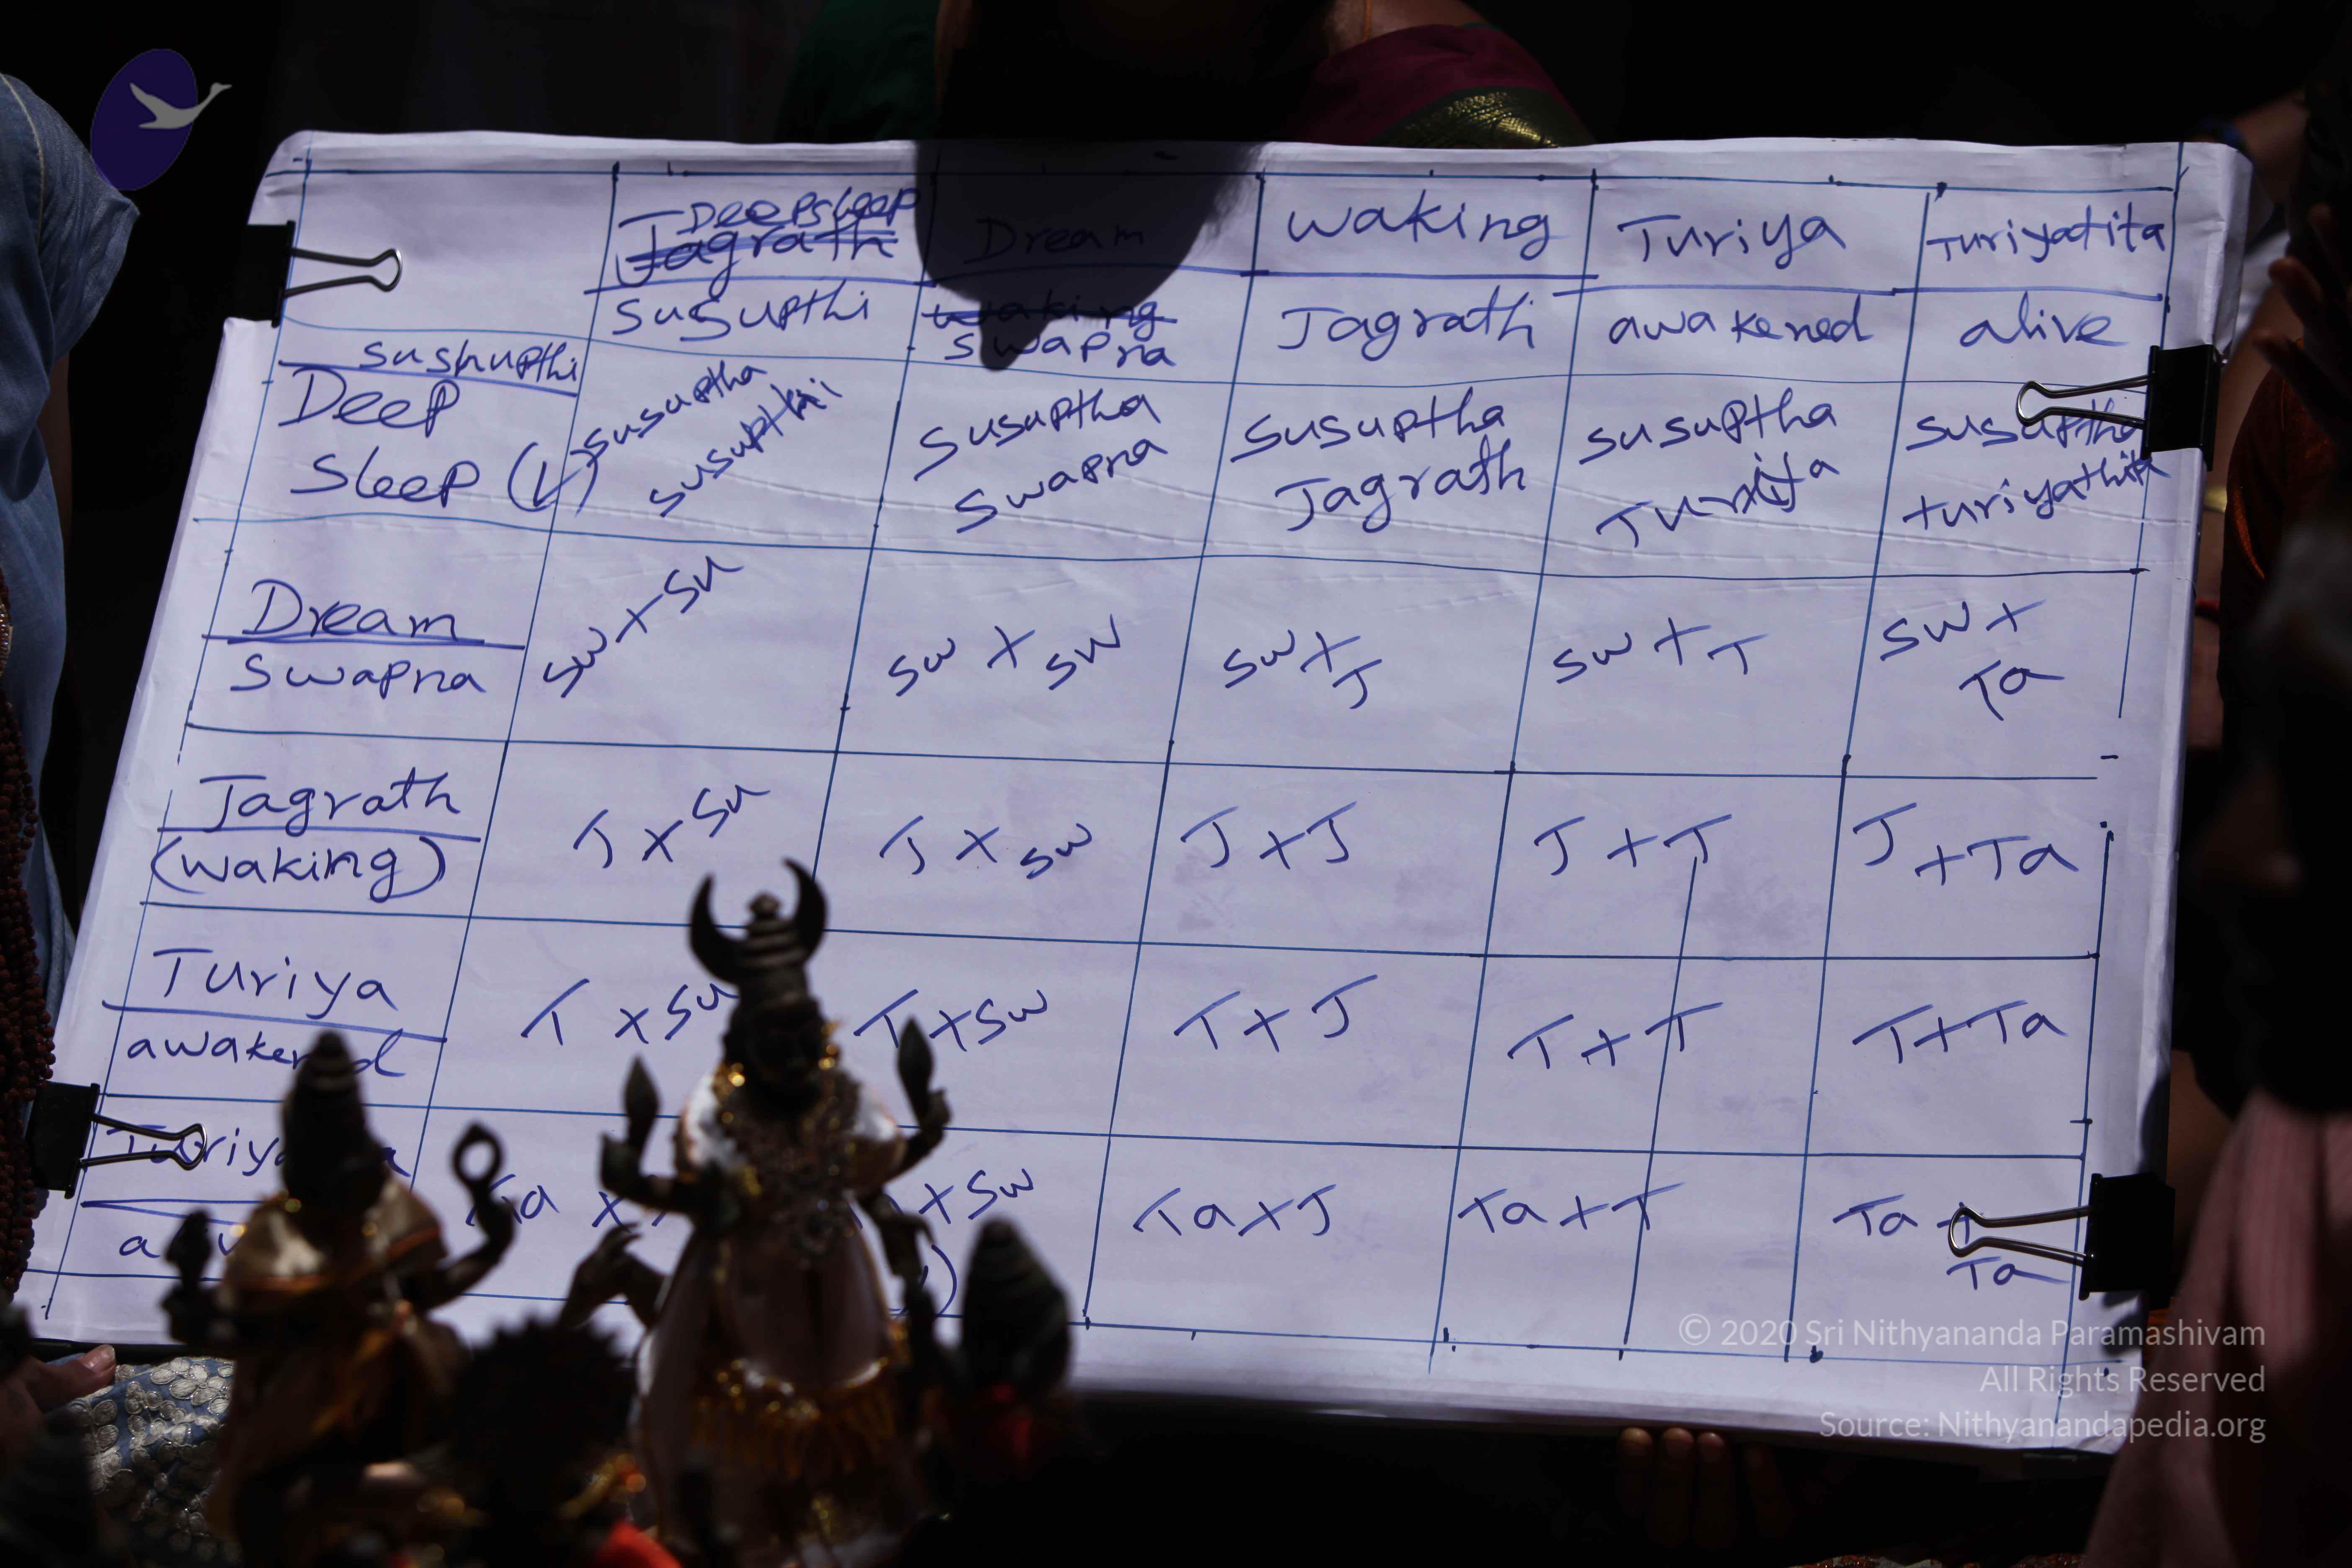 Deepsleep
Jagrath
Dream
Waking
Turiya
Turiyatita
Susupthi
Waking
Swapna
Jagrath
awakened
alive
Sushupthi
Deep
Sleep
Susuptha
Susupthi
Susuptha
Swapna
Susuptha
Jagrath
Susuptha
Susuptha
turiyathita
Dream
Swapna
Sw x Su
Sw x Sw
Sw x J
Sw x T
Sw x
Ta
Jagrath
(waking)
J x Su
J x Sw
J x J
J + T
J + Ta
Turiya
awakened
T x Su
T x Sw
T x J
T + T
T + Ta
Ta x
x Sw
Ta x J
Ta + T
Ta +
Ta
© 2020 Sri Nithyananda Paramashivam
All Rights Reserved
Source: Nithyanandapedia.org